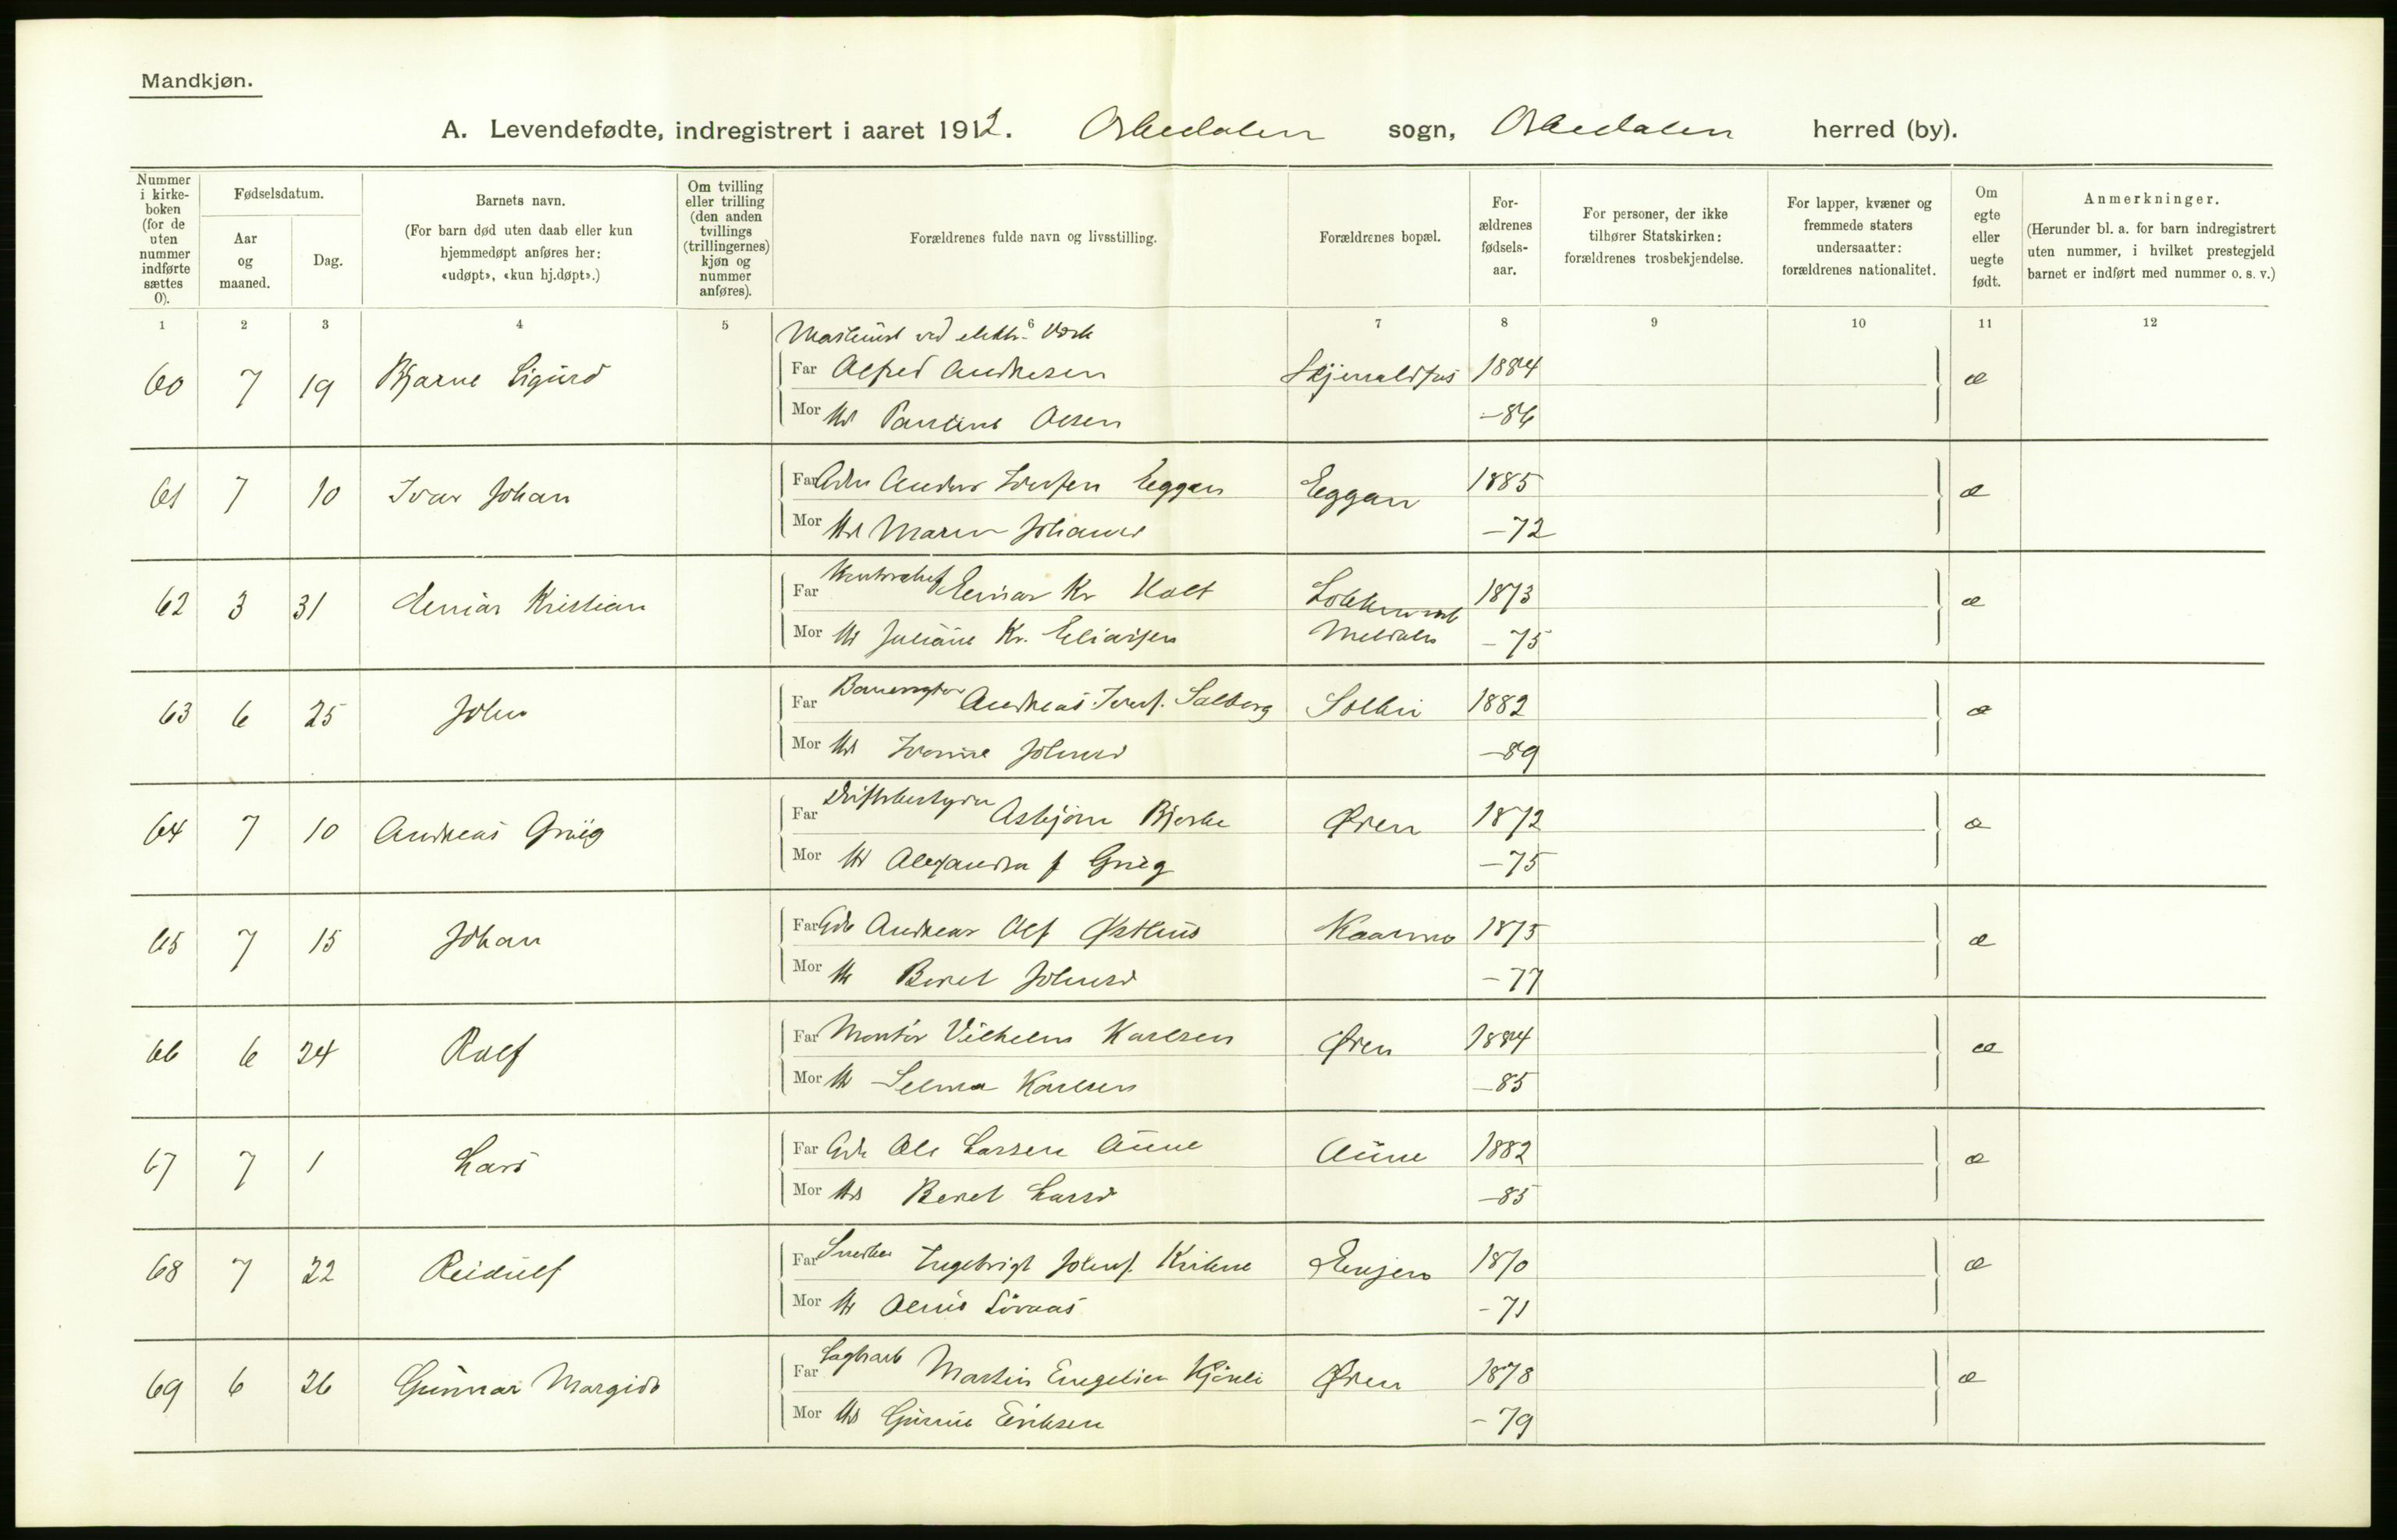 Mandkjøn.
A. Levendefødte, indregistrert i aaret 1912. Orkedalen sogn, Orkedalen herred (by).
Nummer i kirkeboken (for de uten nummer indførte sættes 0).
Fødselsdatum.
Aar og maaned.
Dag.
Barnets navn.
(For barn død uten daab eller kun hjemmedøpt anføres her: «udøpt», «kun hj.døpt».)
Om tvilling eller trilling (den anden tvillings (trillingernes) kjøn og nummer anføres).
Forældrenes fulde navn og livsstilling.
Forældrenes bopæl.
Forældrenes fødselsaar.
For personer, der ikke tilhører Statskirken: forældrenes trosbekjendelse.
For lapper, kvæner og fremmede staters undersaatter: forældrenes nationalitet.
Om egte eller uegte født.
Anmerkninger.
(Herunder bl. a. for barn indregistrert uten nummer, i hvilket prestegjeld barnet er indført med nummer o. s. v.)
1 2 3 4 5 6 7 8 9 10 11 12
Maskinist ved elektr. Værk
60 7 19 Bjarne Sigurd Far Alfred Andresen 1884 æ
Mor Hu Pauline Olsen -86
61 7 10 Ivar Johan Far Anders Eggen Eggan 1885 æ
Mor Hu Maren Johansd -72
62 3 31 Einar Kristian Far Einar Kr Holt Løkken 1873 æ
Mor Hu Juliane Kr. Eliassen Meldalen -75
63 6 25 John Far Andreas Iversf. Solberg 1882 æ
Mor Hu Johnsd -89
64 7 10 Andreas Grieg Far Driftsbestyrer Asbjörn Bjerke Øren 1872 æ
Mor Hu Alexandra f Grieg -75
65 7 15 Johan Far Gdr Andreas Olf Østhus Kaarmo 1875 æ
Mor Hu Beret Johnsd -77
66 6 24 Rolf Far Montör Vilhelm Karlsen Øren 1884 æ
Mor Hu Selma Karlsen -85
67 7 1 Lars Far Gdr Ole Larsen Aune Aune 1882 æ
Mor Hu Beret Larsd -85
68 7 22 Reidulf Far Snedker Ingebrigt Johnsf. 1870 æ
Mor Hu -71
69 6 26 Gunnar Margido Far Martin Engelien Øren 1878 æ
Mor Hu Eriksen -79